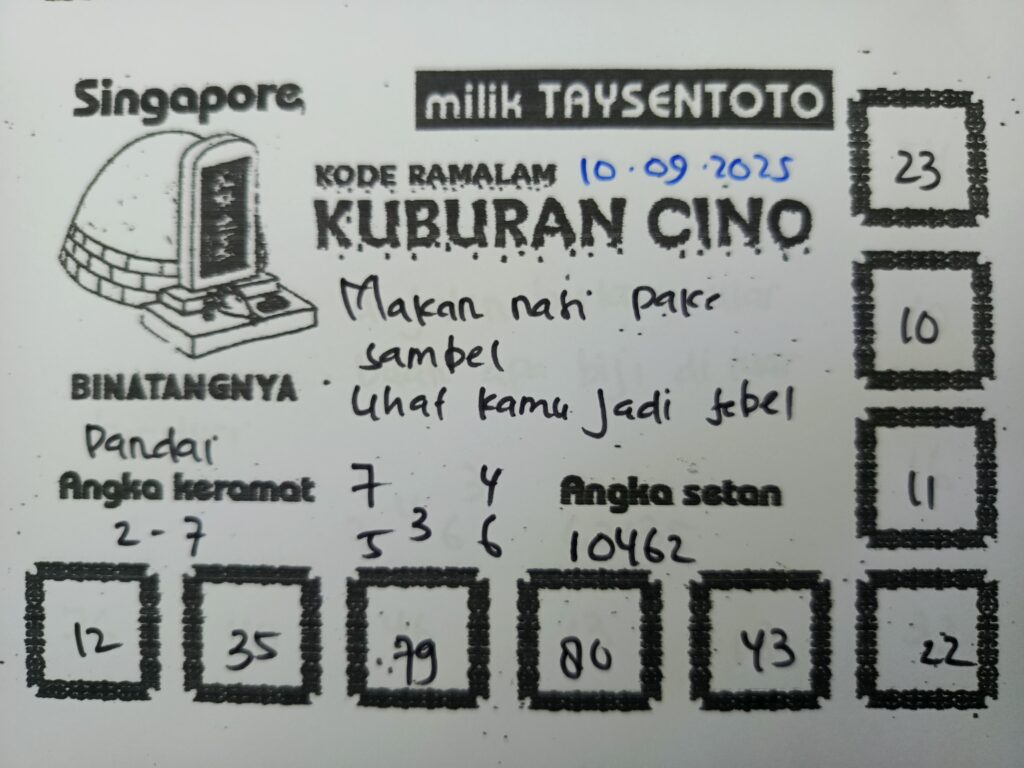 Singapore
milik TAYSENTOTO
KODE RAMALAM 10.09.2025
KUBURAN CINO
Makan nasi pake
sambel
Lihat kamu jadi sebel
BINATANGNYA
Pandai
Angka keramat
2 - 7
7 4
3
5 6
Angka setan
10462
23
10
11
12 35 79 80 43 22